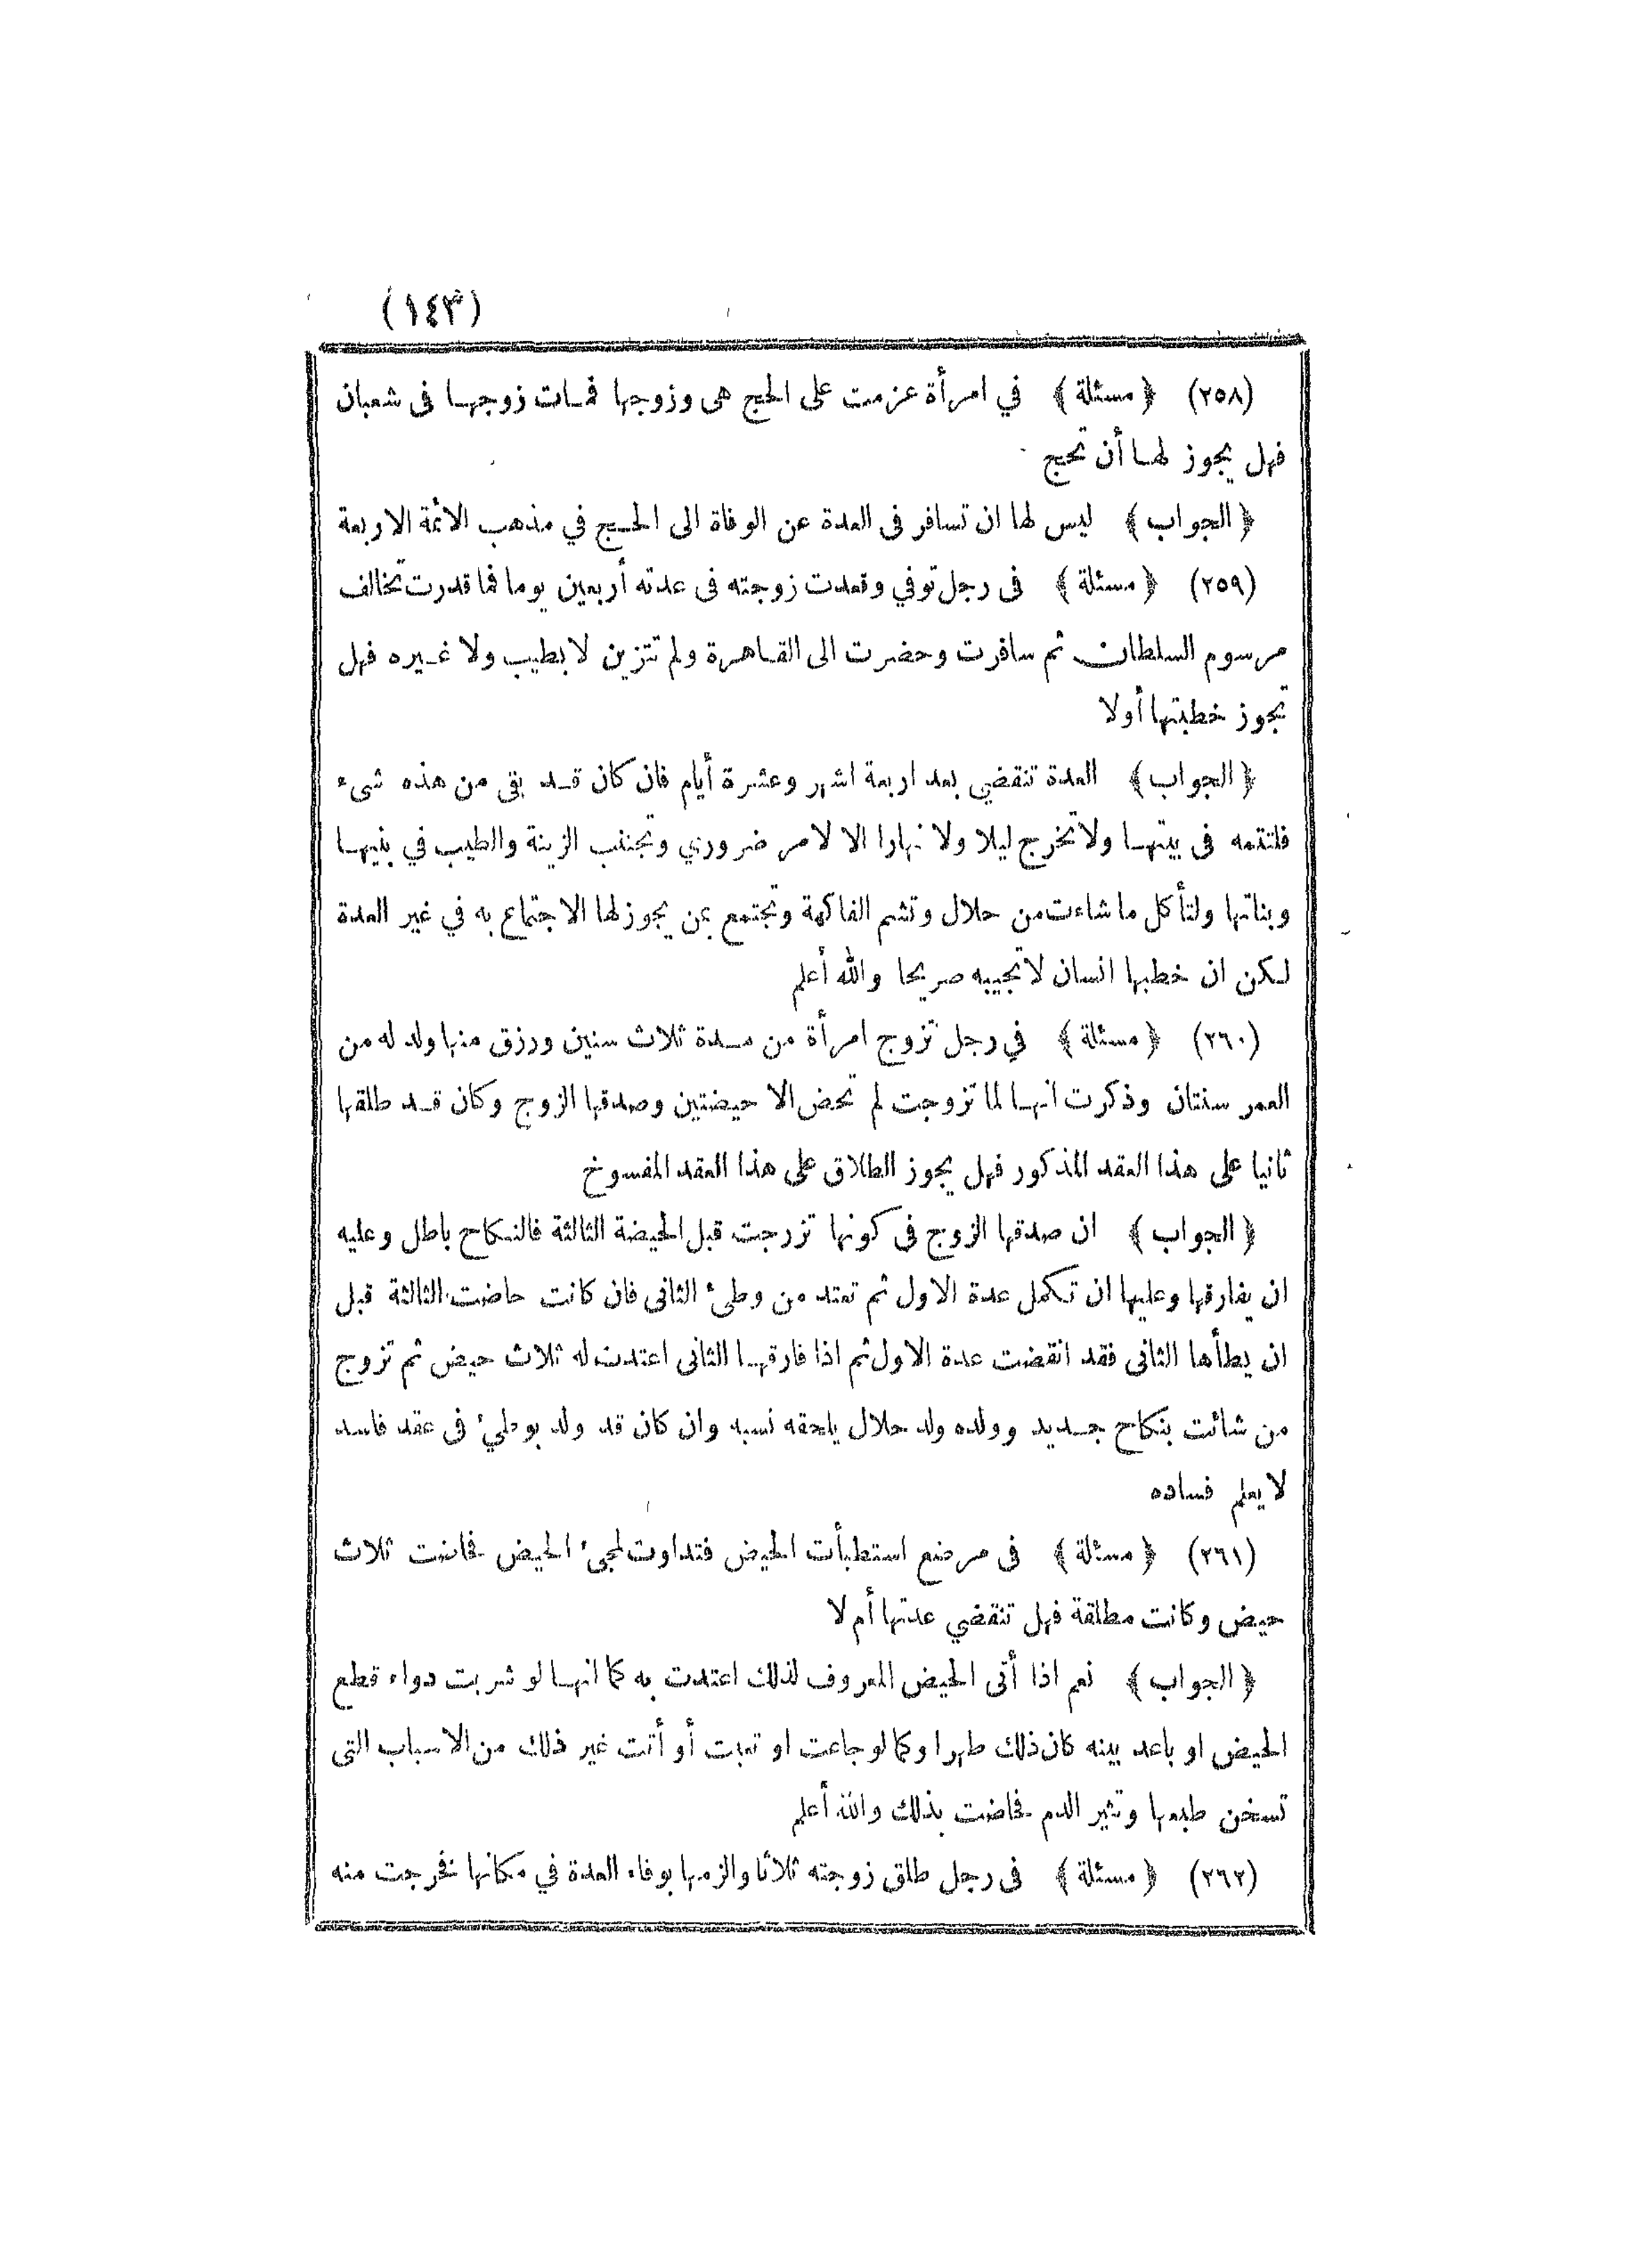 (١٤٣)
(٢٥٨) ﴿ مسئلة ﴾ في امرأة عزمت على الحج هى وزوجها فمات زوجها فى شعبان
فهل يجوز لها أن تحج
﴿ الجواب ﴾ ليس لها ان تسافر فى العدة عن الوفاة الى الحج في مذهب الائمة الاربعة
(٢٥٩) ﴿ مسئلة ﴾ فى رجل توفي وقعدت زوجته فى عدته أربعين يوما فما قدرت تخالف
مرسوم السلطان ثم سافرت وحضرت الى القاهرة ولم تتزين لا بطيب ولا غيره فهل
تجوز خطبتها أولا
﴿ الجواب ﴾ العدة تنقضي بعد اربعة اشهر وعشرة أيام فان كان قد بقى من هذه شىء
فلتتمه فى بيتها ولا تخرج ليلا ولا نهارا الا لامر ضروري وتجتنب الزينة والطيب في بدنها
وبناتها ولتأكل ما شاءت من حلال وتشم الفاكهة وتجتمع بمن يجوز لها الاجتماع به في غير العدة
لكن ان خطبها انسان لا تجيبه صريحا والله أعلم
(٢٦٠) ﴿ مسئلة ﴾ في رجل تزوج امرأة من مدة ثلاث سنين ورزق منها ولد له من
العمر سنتان وذكرت انها لما تزوجت لم تحض الا حيضتين وصدقها الزوج وكان قد طلقها
ثانيا على هذا العقد المذكور فهل يجوز الطلاق على هذا العقد المفسوخ
﴿ الجواب ﴾ ان صدقها الزوج فى كونها تزرجت قبل الحيضة الثالثة فالنكاح باطل وعليه
ان يفارقها وعليها ان تكمل عدة الاول ثم تعتد من وطئ الثانى فان كانت حاضت الثالثة قبل
ان يطأها الثانى فقد انقضت عدة الاول ثم اذا فارقها الثانى اعتدت له ثلاث حيض ثم تزوج
من شائت بنكاح جديد وولده ولد حلال يلحقه نسبه وان كان قد ولد بوطئ فى عقد فاسد
لا يعلم فساده
(٢٦١) ﴿ مسئلة ﴾ فى مرضع استطبأت الحيض فتداوت لمجئ الحيض فحاضت ثلاث
حيض وكانت مطلقة فهل تنقضي عدتها أم لا
﴿ الجواب ﴾ نعم اذا أتى الحيض المعروف لذلك اعتدت به كما انها لو شربت دواء قطع
الحيض او باعد بينه كان ذلك طهرا وكما لو جاعت او تعبت أو أتت غير ذلك من الاسباب التى
تسخن طبعها وتثير الدم فحاضت بذلك والله أعلم
(٢٦٢) ﴿ مسئلة ﴾ فى رجل طلق زوجته ثلاثا والزمها بوفاء العدة في مكانها فخرجت منه